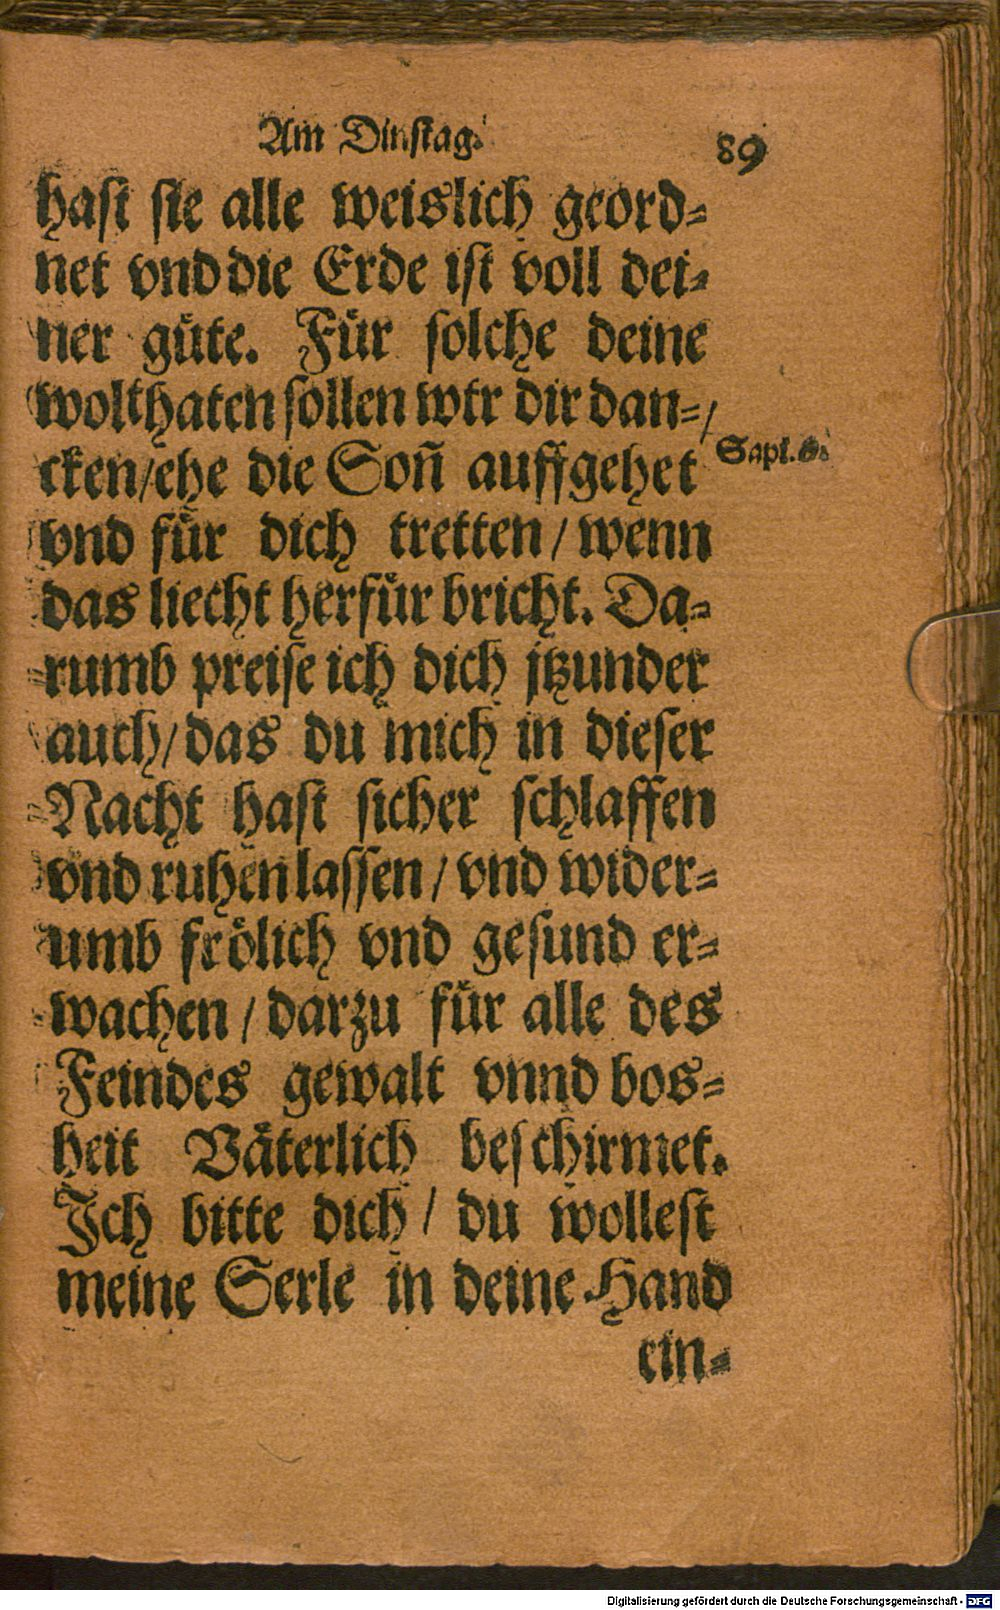 Am Dinstag. 89
hast sie alle weislich geord⸗
net vnd die Erde ist voll dei⸗
ner güte. Für solche deine
wolthaten sollen wir dir dan⸗/
cken/ehe die Soñ auffgehet
Sapi.
vnd für dich tretten / wenn
das liecht herfür bricht. Da⸗
rumb preise ich dich jtzunder
auch/das du mich in dieser
Nacht hast sicher schlaffen
vnd ruhen lassen / vnd wider⸗
umb frölich vnd gesund er⸗
wachen / darzu für alle des
Feindes gewalt vnnd bos⸗
heit Väterlich beschirmet.
Ich bitte dich / du wollest
meine Serle in deine Hand
ein⸗
Digitalisierung gefördert durch die Deutsche Forschungsgemeinschaft - DFG